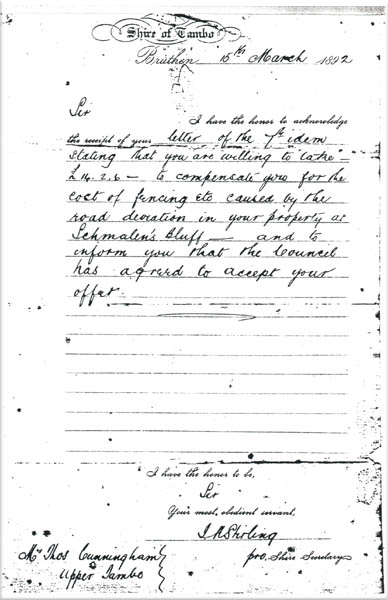 Shire of Tambo
Bruthen 15th March 1892
Sir
I have the honor to acknowledge
the receipt of your letter of the 7th idem
stating that you are willing to take
£14.2.6 – to compensate you for the
cost of fencing etc caused by the
road deviation in your property at
Schmalen's Bluff – and to
inform you that the Council
has agreed to accept your
offer
I have the honor to be,
Sir
Your most obedient servant,
pro. Shire Secretary
Mr Thos Cunningham
Upper Tambo